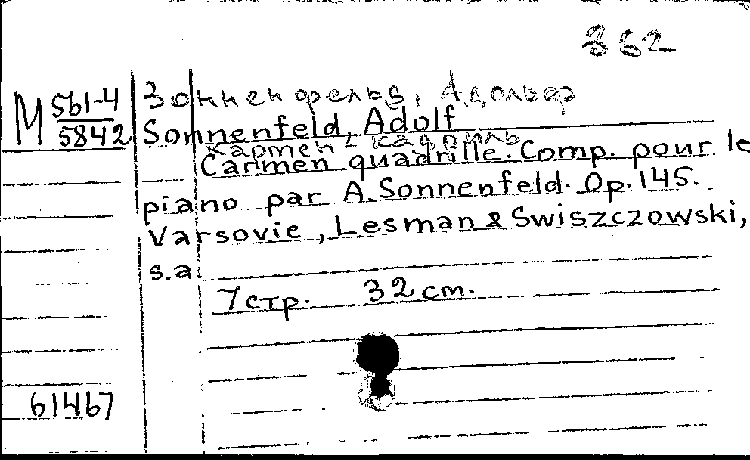 862
М 561-4
5842
Зонненфельд, Адольф
Sonnenfeld, Adolf
Кармен кадриль
Carmen quadrille. Comp. pour le
piano par A. Sonnenfeld. Op. 145.
Varsovie, Lesman & Swiszczowski,
s.a.
7 стр. 32 cm.
61467